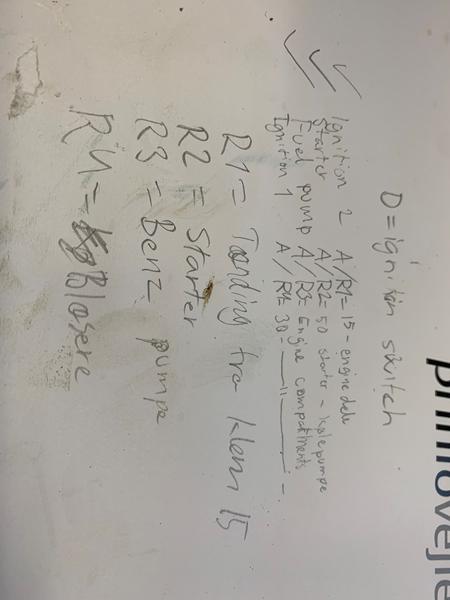 D=ignition switch
Ignition 2 A/R1=15-engine dele
Starter A/R2=50 starter -
Fuel pump A/R3= Engine compartments
Ignition 1 A/ 30-
R1= Tænding fra klem 15
R2 = Starter
R3 = Benz pumpe
R4= Blæsere